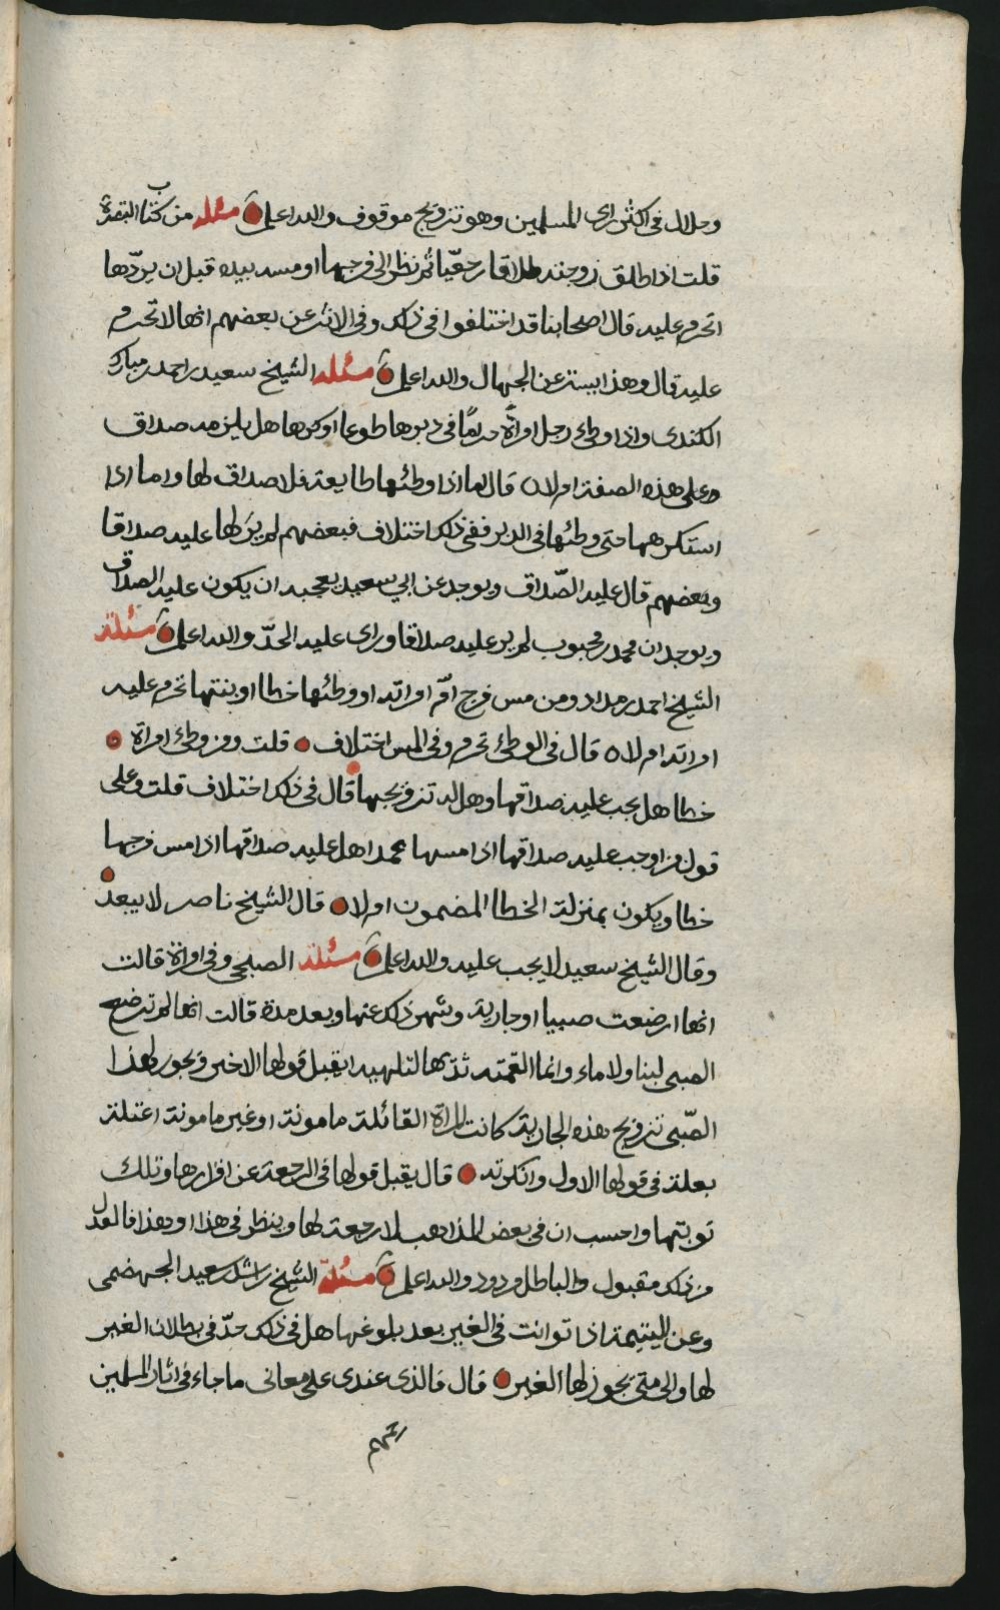 وحلال في اكثر راي المسلمين وهو تزويج موقوف والله اعلم مسئله من كتاب التبصرة
قلت اذا طلق زوجته طلاقا رجعيّا ثم نظر الى فرجها او مسه بيده قبل ان يردّها
اتحرم عليه قال اصحابنا قد اختلفوا في ذلك وفي الاثر عن بعضهم انها لا تحرم
عليه قال وهذا يستر عن الجهال والله اعلم مسئله الشيخ سعيد بن احمد بن مبارك
الكندي واذا وطئ رجل امراة حرامًا في دبرها طوعا او كرها هل يلزمه صداق
وعلى هذه الصفة ام لا قال اما اذا وطئها طايعة فلا صداق لها واما اذا
استكرهها حتى وطئها في الدبر ففي ذلك اختلاف فبعضهم لم ير لها عليه صداقا
وبعضهم قال عليه الصّداق ويوجد عن ابي سعيد يعجبه ان يكون عليه الصداق
ويوجد ان محمد بن محبوب لم ير عليه صداقا وراى عليه الحدّ والله اعلم مسئلة
الشيخ احمد بن مداد ومن مس فرج امّ امراته او وطئها خطا او بنتها تحرم عليه
امراته ام لا قال في الوطئ تحرم وفي المس اختلاف قلت ومن وطئ امراة
خطا هل يجب عليه صداقها وهل له تزويجها قال في ذلك اختلاف قلت وعلى
قول من اوجب عليه صداقها اذا مسها عمدا هل عليه صداقها اذا مس فرجها
خطا ويكون بمنزلة الخطا المضمون ام لا قال الشيخ ناصر لا يبعد
وقال الشيخ سعيد لا يجب عليه والله اعلم مسئلة الصبحي وفي امراة قالت
انها ارضعت صبيا او جارية وشهر ذلك عنها وبعد مدة قالت انها لم ترضع
الصبي لبنا ولا ماء وانما القمته ثديها لتلهيه ايقبل قولها الاخير ويجوز لهذا
الصّبي تزويج هذه الجارية كانت المراة القائلة مامونة او غير مامونة اعتلت
بعلة في قولها الاول وانكرته قال يقبل قولها في الرجعة عن اقرارها وتلك
توبتها واحسب ان في بعض المذاهب لا رجعة لها وينظر في هذا وهذا فالعدل
من ذلك مقبول والباطل مردود والله اعلم مسئلة الشيخ راشد بن سعيد الجهضمي
وعن اليتيمة اذا توانت في الغير بعد بلوغها هل في ذلك حدّ في بطلان الغير
لها والى متى يجوز لها الغير قال فالذي عندي على معاني ما جاء في اثار المسلمين